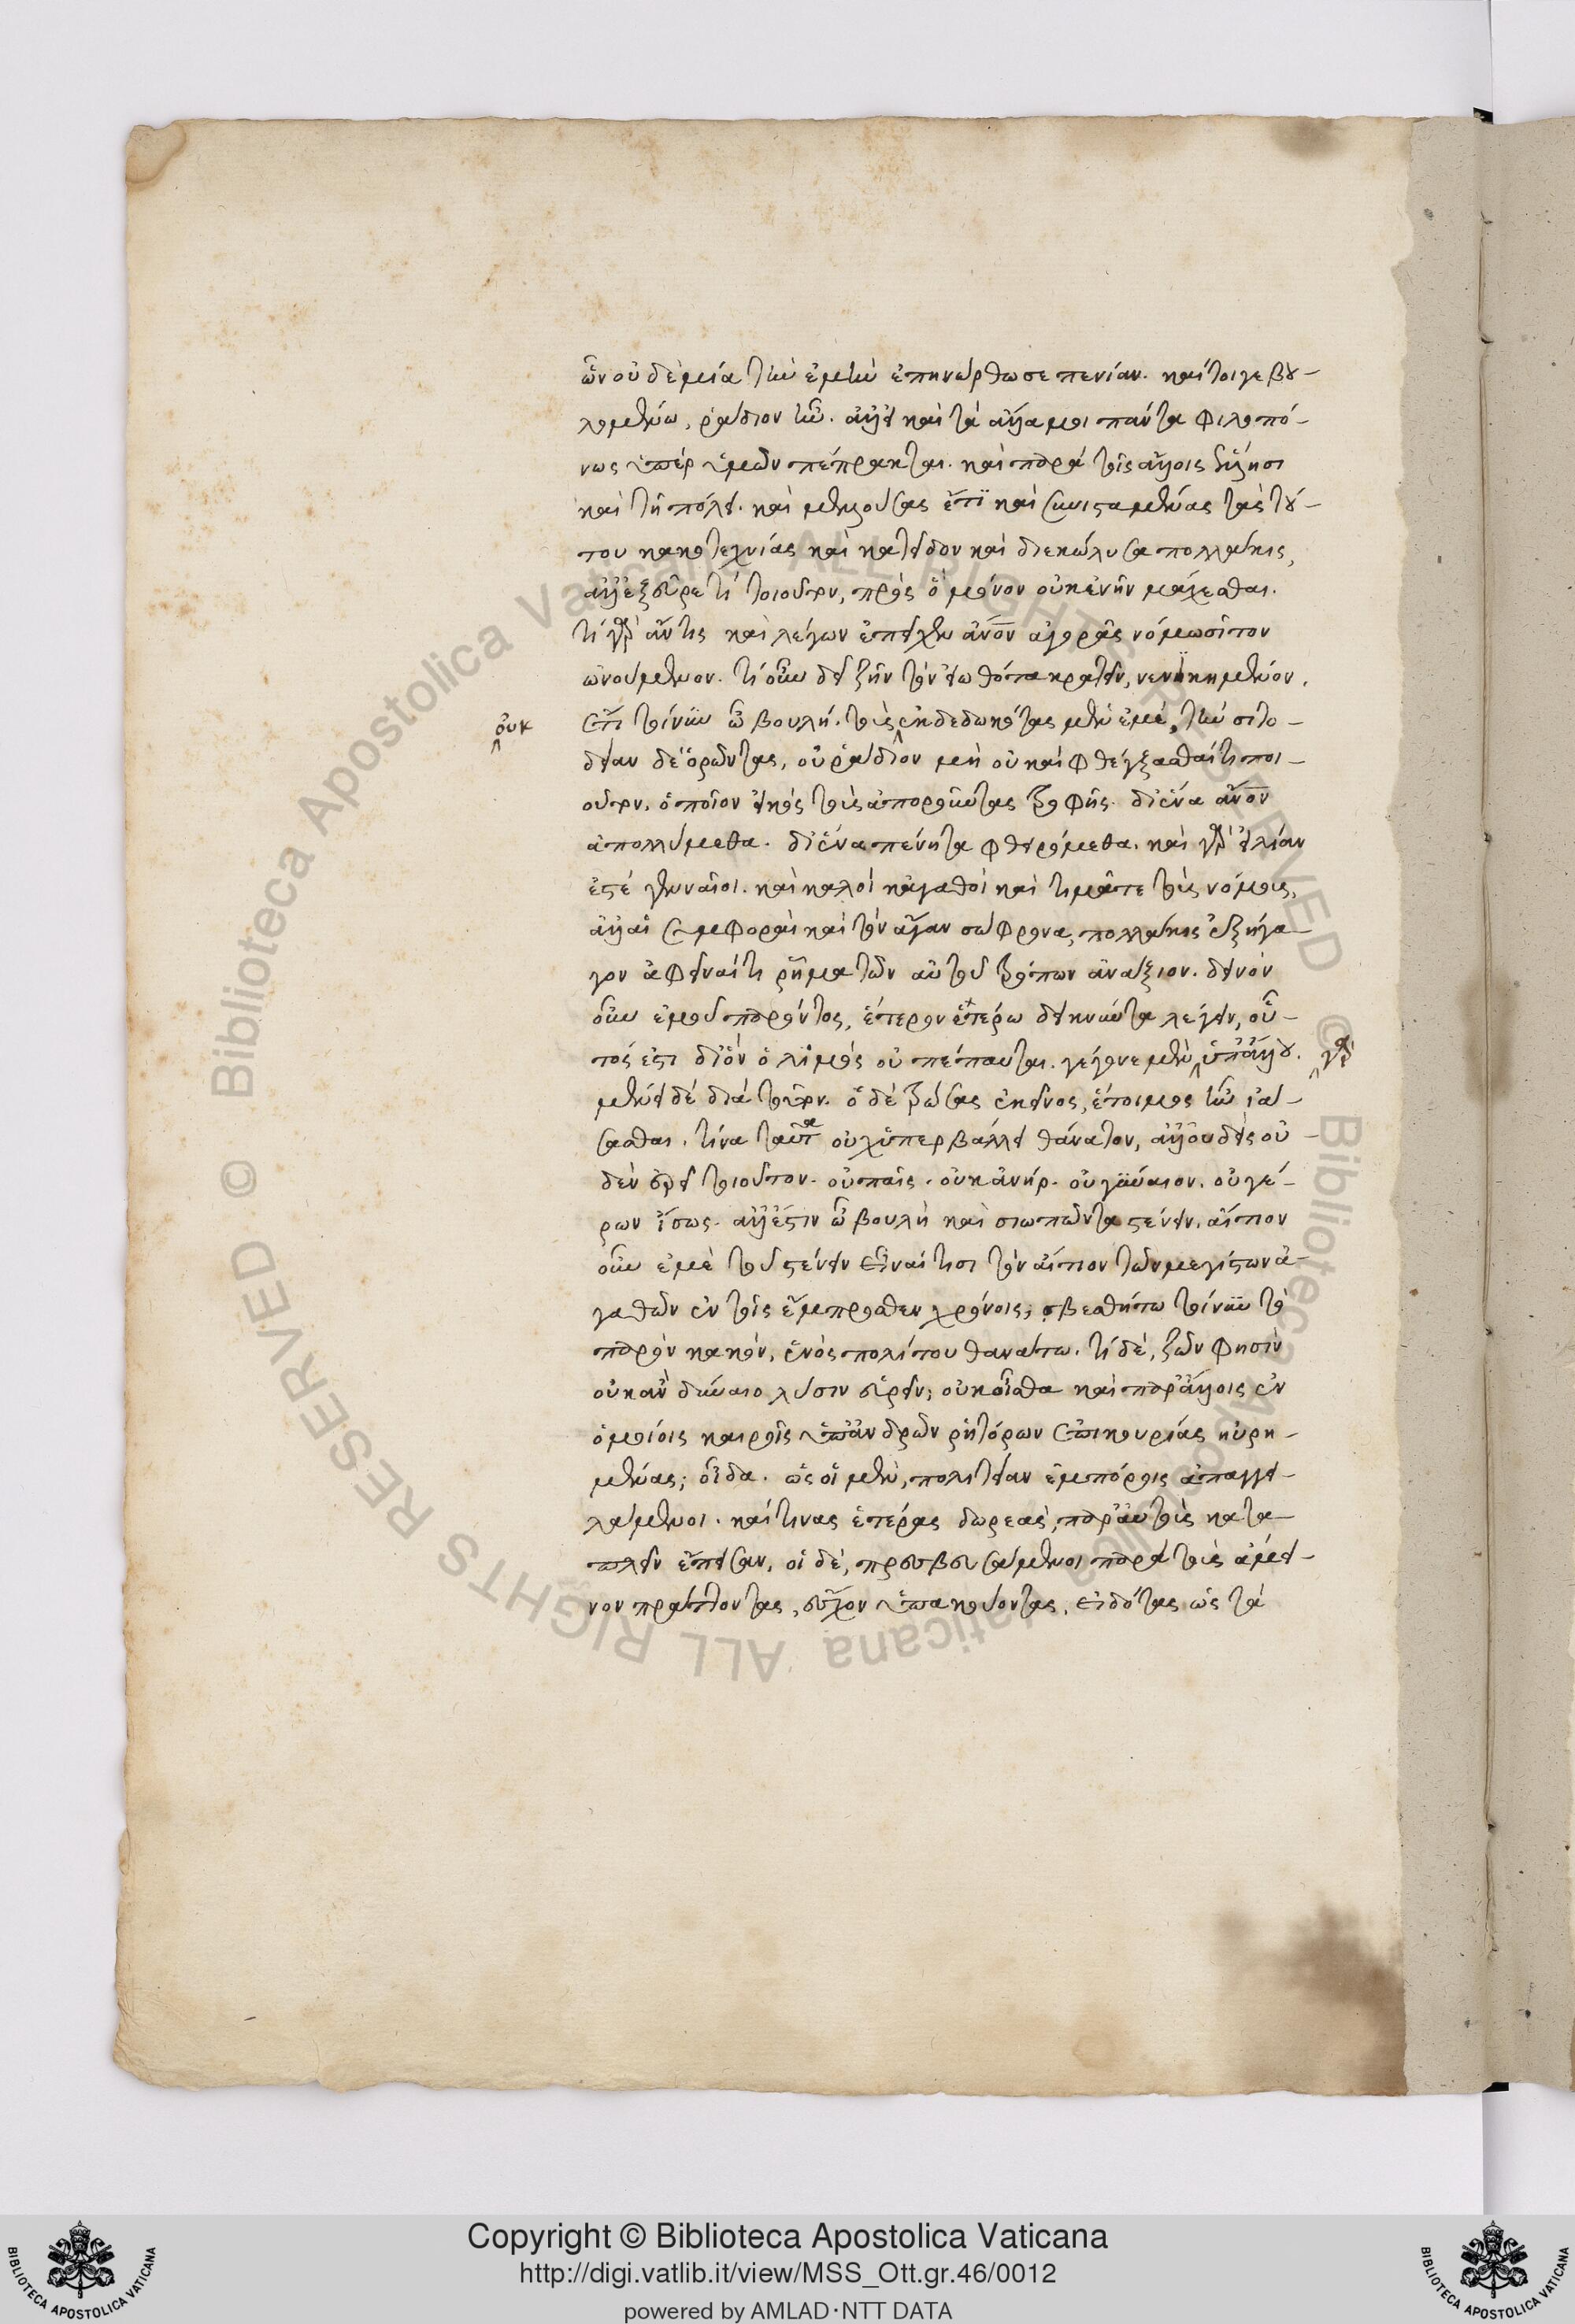 ὧν οὐδεμία τὴν ἐμὴν ἐπηνώρθωσε πενίαν. καίτοιγε βου-
λομένω, ῥάδιον ἦν. ἀλλὰ καὶ τὰ ἄλλα μοι πάντα φιλοπό-
νως ὑπὲρ ὑμῶν πέπρακται. καὶ παρὰ τοῖς ἄλλοις Ἕλλησι
καὶ τῇ πόλει. καὶ μελλούσας ἔτι καὶ συνισταμένας τὰς τού-
του κακοτεχνίας καὶ κατεῖδον καὶ διεκώλυσα πολλάκις,
ἀλλ' ἐξεῦρέ τι τοιοῦτον, πρὸς ὃ μόνον οὐκ ἐνῆν μάχεσθαι.
τί γὰρ ἄν τις καὶ λέγων ἐπεῖχεν ἄνον ἀγορᾶς νόμω σῖτον
ὠνούμενον. τί οὖν δεῖ ζῆν τὸν εἰωθότα κρατεῖν, νενικημένον.
ἔτι τοίνυν ὦ βουλή. τοὺς ἐκδεδωκότας μὲν ἐμὲ, τὴν σιτο-
οὐκ
δείαν δὲ ὁρῶντας, οὐ ῥάδιον μὴ οὐ καὶ φθέγξασθαί τι τοι-
οῦτον, ὁποῖον εἰκὸς τοὺς ἀποροῦντας τροφῆς. δι' ἕνα ἄνον
ἀπολλύμεθα. δι' ἕνα πένητα φθειρόμεθα. καὶ γὰρ εἰ λίαν
ἐστὲ γενναῖοι. καὶ καλοὶ κἀγαθοὶ καὶ τιμᾶτε τοὺς νόμους,
ἀλλ' αἱ συμφοραὶ καὶ τὸν ἄγαν σώφρονα, πολλάκις ἐξήγα-
γον ἀφεῖναί τι ῥῆμα τῶν αὑτοῦ τρόπων ἀνάξιον. δεινὸν
οὖν ἐμοῦ παρόντος, ἕτερον ἑτέρω δεικνύντα λέγειν, οὗ-
τός ἐστι δι' ὃν ὁ λιμὸς οὐ πέπαυται. γέγονε μὲν ὑπ' ἄλλου. γὰρ
μένει δὲ διὰ τοῦτον. ὁ δὲ τρώσας ἐκεῖνος, ἕτοιμος ἦν ἰά-
σασθαι. τίνα ταῦτα οὐχ ὑπερβάλλει θάνατον, ἀλλ' οὐδεὶς οὐ-
δὲν ἐρεῖ τοιοῦτον. οὐ παῖς. οὐκ ἀνήρ. οὐ γύναιον. οὐ γέ-
ρων ἴσως. ἀλλ' ἔστιν ὦ βουλὴ καὶ σιωπῶντα στένειν. αἴτιον
οὖν ἐμὲ τοῦ στένειν εἶναί τισι τὸν αἴτιον τῶν μεγίστων ἀ-
γαθῶν ἐν τοῖς ἔμπροσθεν χρόνοις; σβεσθήτω τοίνυν τὸ
παρὸν κακὸν, ἑνὸς πολίτου θανάτω. τί δὲ, ζῶν φησὶν
οὐκ ἂν δύναιο λύσιν εὑρεῖν; οὐκ οἶσθα καὶ παρ' ἄλλοις ἐν
ὁμοίοις καιροῖς ὑπ' ἀνδρῶν ῥητόρων ἐπικουρίας ηὑρη-
μένας; οἶδα. ὡς οἱ μὲν, πολιτείαν ἐμπόροις ἐπαγγει-
λάμενοι. καί τινας ἑτέρας δωρεὰς, παρ' αὐτοὺς κατα-
πλεῖν ἔπεισαν, οἱ δὲ, πρεσβευσάμενοι παρὰ τοὺς ἄμει-
νον πράττοντας, εὗρον ὑπακούοντας, εἰδότας ὡς τὰ